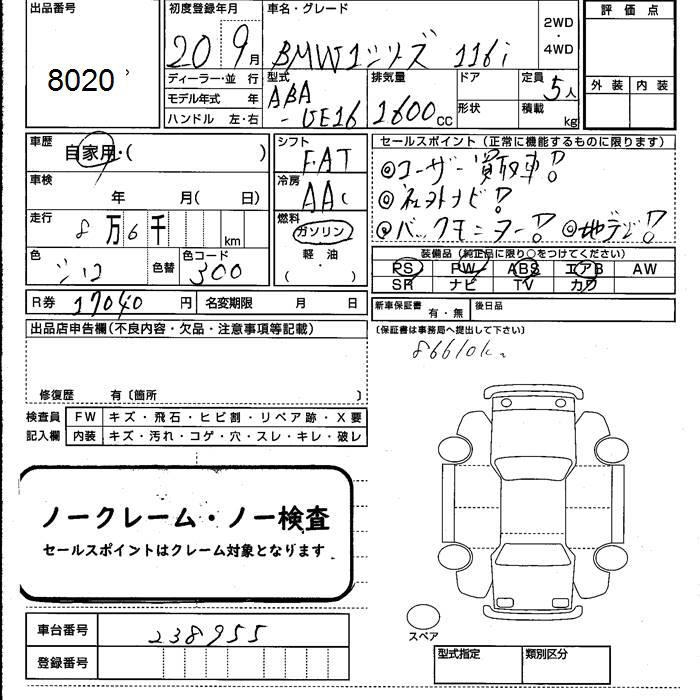 出品番号
8020
初度登録年月
20 9月
車名・グレード
BMW1シリーズ 116i
2WD
・
4WD
評価点
外装 内装
ディーラー・並行
モデル年式 年
ハンドル 左・右
型式
ABA
-UE16
排気量
1600cc
ドア
形状
定員 5人
積載 kg
車歴
自家用・( )
車検
年 月( 日)
走行
8万6千 km
色
シロ
色替
色コード
300
シフト
FAT
冷房
AAC
燃料
ガソリン
軽・油
( )
セールスポイント(正常に機能するものに限ります)
◎ユーザー買取車!
◎社外ナビ!
◎バックモニター! ◎地デジ!
装備品(純正品に限り○をつけてください)
PS PW ABS エアB AW
SR ナビ TV カワ
R券 17040円 名変期限 月 日
新車保証書 有・無 後日品
(保証書は事務局へ提出して下さい)
出品店申告欄(不良内容・欠品・注意事項等記載)
86610k
修復歴 有〔箇所 〕
検査員
記入欄
FW キズ・飛石・ヒビ割・リペア跡・X要
内装 キズ・汚れ・コゲ・穴・スレ・キレ・破レ
ノークレーム・ノー検査
セールスポイントはクレーム対象となります
車台番号 238955
登録番号
スペア
型式指定 類別区分